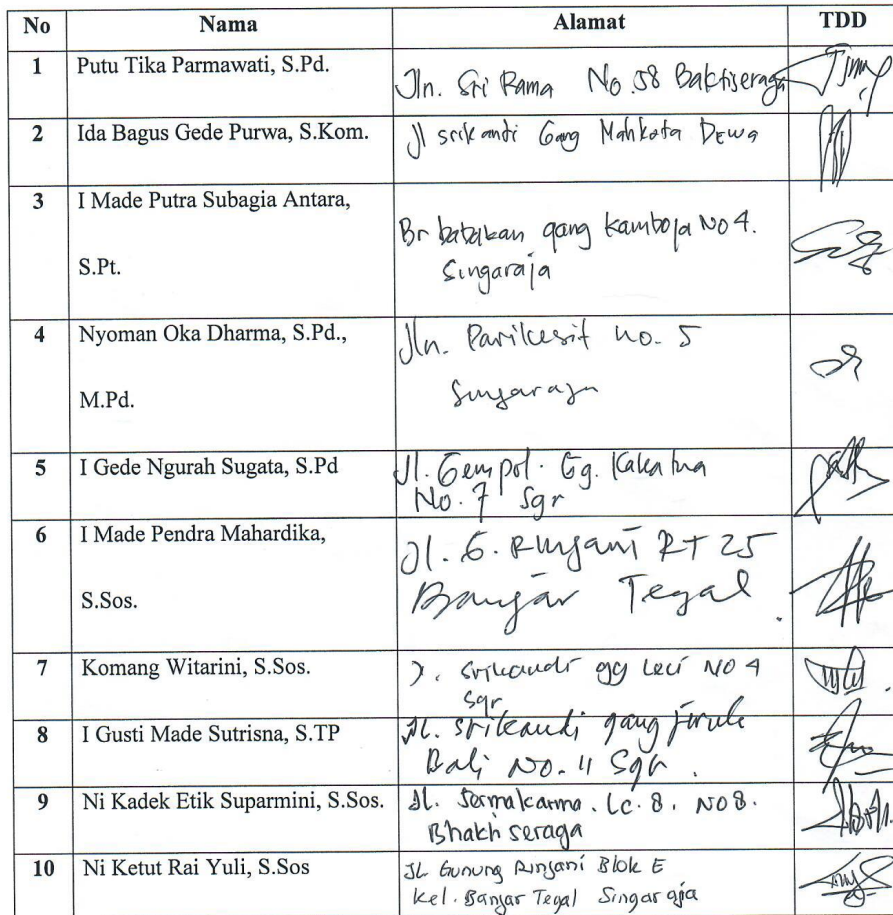 No Nama Alamat TDD
1 Putu Tika Parmawati, S.Pd. Jln. Sri Rama No.58 Baktiseraga
2 Ida Bagus Gede Purwa, S.Kom. Jl srikandi Gang Mahkota Dewa
3 I Made Putra Subagia Antara,
S.Pt.
Br batakan gang kamboja No 4.
Singaraja
4 Nyoman Oka Dharma, S.Pd.,
M.Pd.
Jln. Parikesit no. 5
Singaraja
5 I Gede Ngurah Sugata, S.Pd Jl. Gempol. Gg. Kakatua
No. 7 Sgr
6 I Made Pendra Mahardika,
S.Sos.
Jl. G. Rinjani RT 25
Banjar Tegal
7 Komang Witarini, S.Sos. Jl. Srikandi gg Leci No 4
Sgr
8 I Gusti Made Sutrisna, S.TP Jl. Srikandi gang Jeruk
Bali No. 11 Sgr.
9 Ni Kadek Etik Suparmini, S.Sos. Jl. Lc. 8. No 8.
Bhakti seraga
10 Ni Ketut Rai Yuli, S.Sos JL Gunung Rinjani Blok E
Kel. Banjar Tegal Singaraja